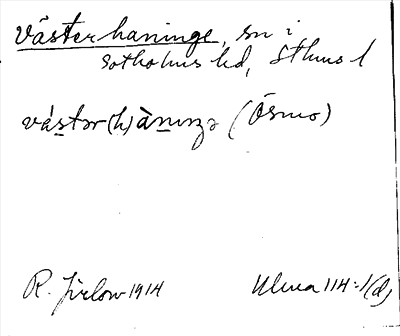 Västerhaninge, sn i
Sotholms hd, Sthms l
västər(h)àniŋə (Ösmo)
R. Jirlow 1914 Ulma 114:1(d)